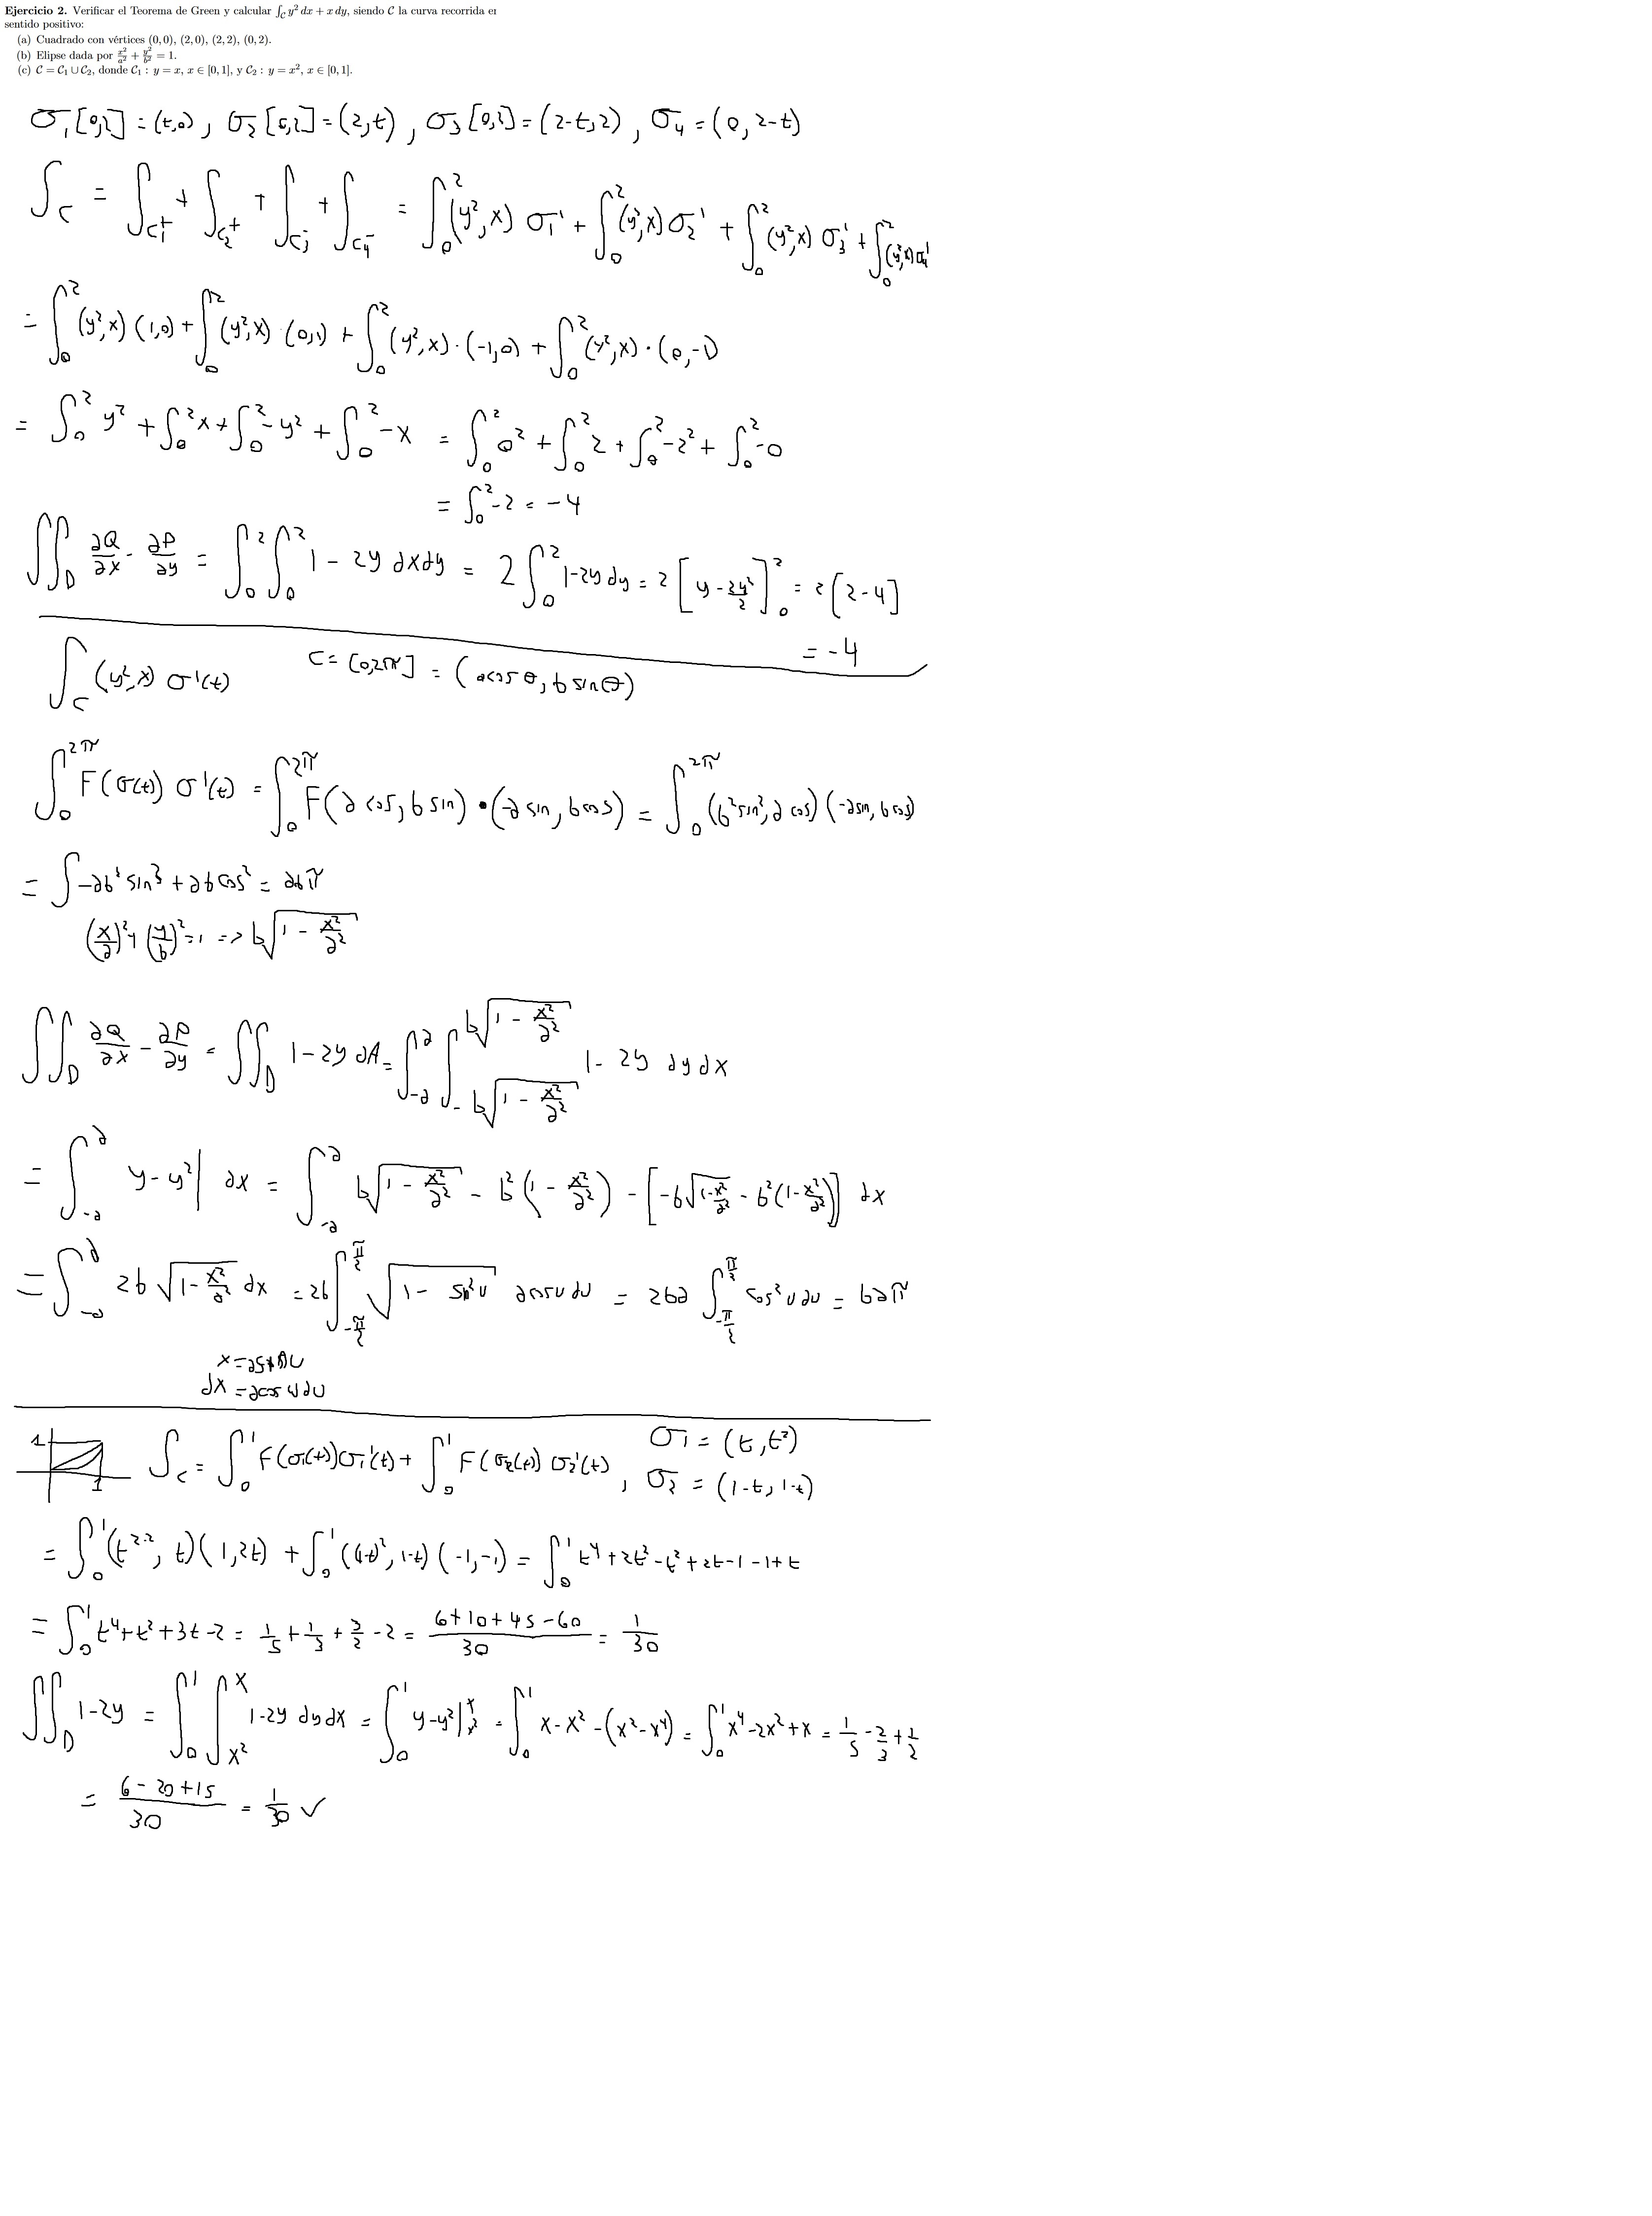 Ejercicio 2. Verificar el Teorema de Green y calcular ∫_C y² dx + x dy, siendo C la curva recorrida en
sentido positivo:
(a) Cuadrado con vértices (0,0), (2,0), (2,2), (0,2).
(b) Elipse dada por x²/a² + y²/b² = 1.
(c) C = C₁ ∪ C₂, donde C₁ : y = x, x ∈ [0,1], y C₂ : y = x², x ∈ [0,1].
σ₁[0,2] = (t,0), σ₂[0,2] = (2,t), σ₃[0,2] = (2-t,2), σ₄ = (0,2-t)
∫_C = ∫_C₁⁺ + ∫_C₂⁺ + ∫_C₃⁻ + ∫_C₄⁻ = ∫₀² (y²,x) σ₁' + ∫₀² (y²,x) σ₂' + ∫₀² (y²,x) σ₃' + ∫₀² (y²,x) σ₄'
= ∫₀² (y²,x) (1,0) + ∫₀² (y²,x) · (0,1) + ∫₀² (y²,x) · (-1,0) + ∫₀² (y²,x) · (0,-1)
= ∫₀² y² + ∫₀² x + ∫₀² -y² + ∫₀² -x = ∫₀² 0² + ∫₀² 2 + ∫₀² -2² + ∫₀² -0
= ∫₀² -2 = -4
∬_D ∂Q/∂x - ∂P/∂y = ∫₀² ∫₀² 1 - 2y dxdy = 2 ∫₀² 1-2y dy = 2 [y - 2y²/2]₀² = 2[2-4]
= -4
∫_C (y²,x) σ'(t) C = [0,2π] = (a cos θ, b sin θ)
∫₀^2π F(σ(t)) σ'(t) = ∫₀^2π F(a cos, b sin) • (-a sin, b cos) = ∫₀^2π (b² sin², a cos) (-a sin, b cos)
= ∫ -ab² sin³ + ab cos² = abπ
(x/a)² + (y/b)² = 1 => b√(1 - x²/a²)
∬_D ∂Q/∂x - ∂P/∂y = ∬_D 1 - 2y dA = ∫_-a^a ∫_-b√(1 - x²/a²)^b√(1 - x²/a²) 1 - 2y dy dx
= ∫_-a^a y - y² | dx = ∫_-a^a b√(1 - x²/a²) - b²(1 - x²/a²) - [-b√(1-x²/a²) - b²(1-x²/a²)] dx
= ∫_-a^a 2b √(1-x²/a²) dx = 2b ∫_-π/2^π/2 √(1 - sin²u) a cos u du = 2ba ∫_-π/2^π/2 cos² u du = baπ
x = a sin u
dx = a cos u du
1
1
∫_C = ∫₀¹ F(σ₁(t)) σ₁'(t) + ∫₀¹ F(σ₂(t)) σ₂'(t), σ₁ = (t,t²)
σ₂ = (1-t, 1-t)
= ∫₀¹ (t^2·2, t)(1,2t) + ∫₀¹ ((1-t)², 1-t) (-1,-1) = ∫₀¹ t⁴ + 2t² - t² + 2t - 1 - 1 + t
= ∫₀¹ t⁴ + t² + 3t - 2 = 1/5 + 1/3 + 3/2 - 2 = (6+10+45-60)/30 = 1/30
∬_D 1-2y = ∫₀¹ ∫_x²^x 1-2y dy dx = ∫₀¹ y-y² |_x²^x = ∫₀¹ x-x² - (x²-x⁴) = ∫₀¹ x⁴-2x²+x = 1/5 - 2/3 + 1/2
= (6 - 20 + 15)/30 = 1/30 ✓